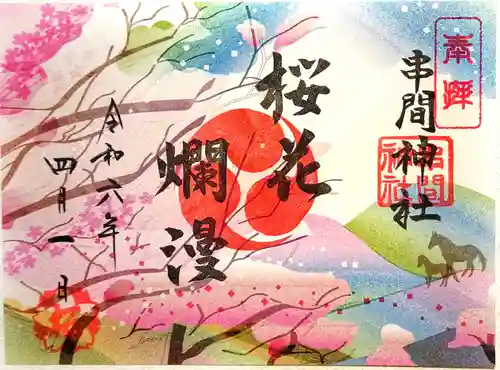 奉拝
串間神社
串間神社
桜花
爛漫
令和六年
四月一日